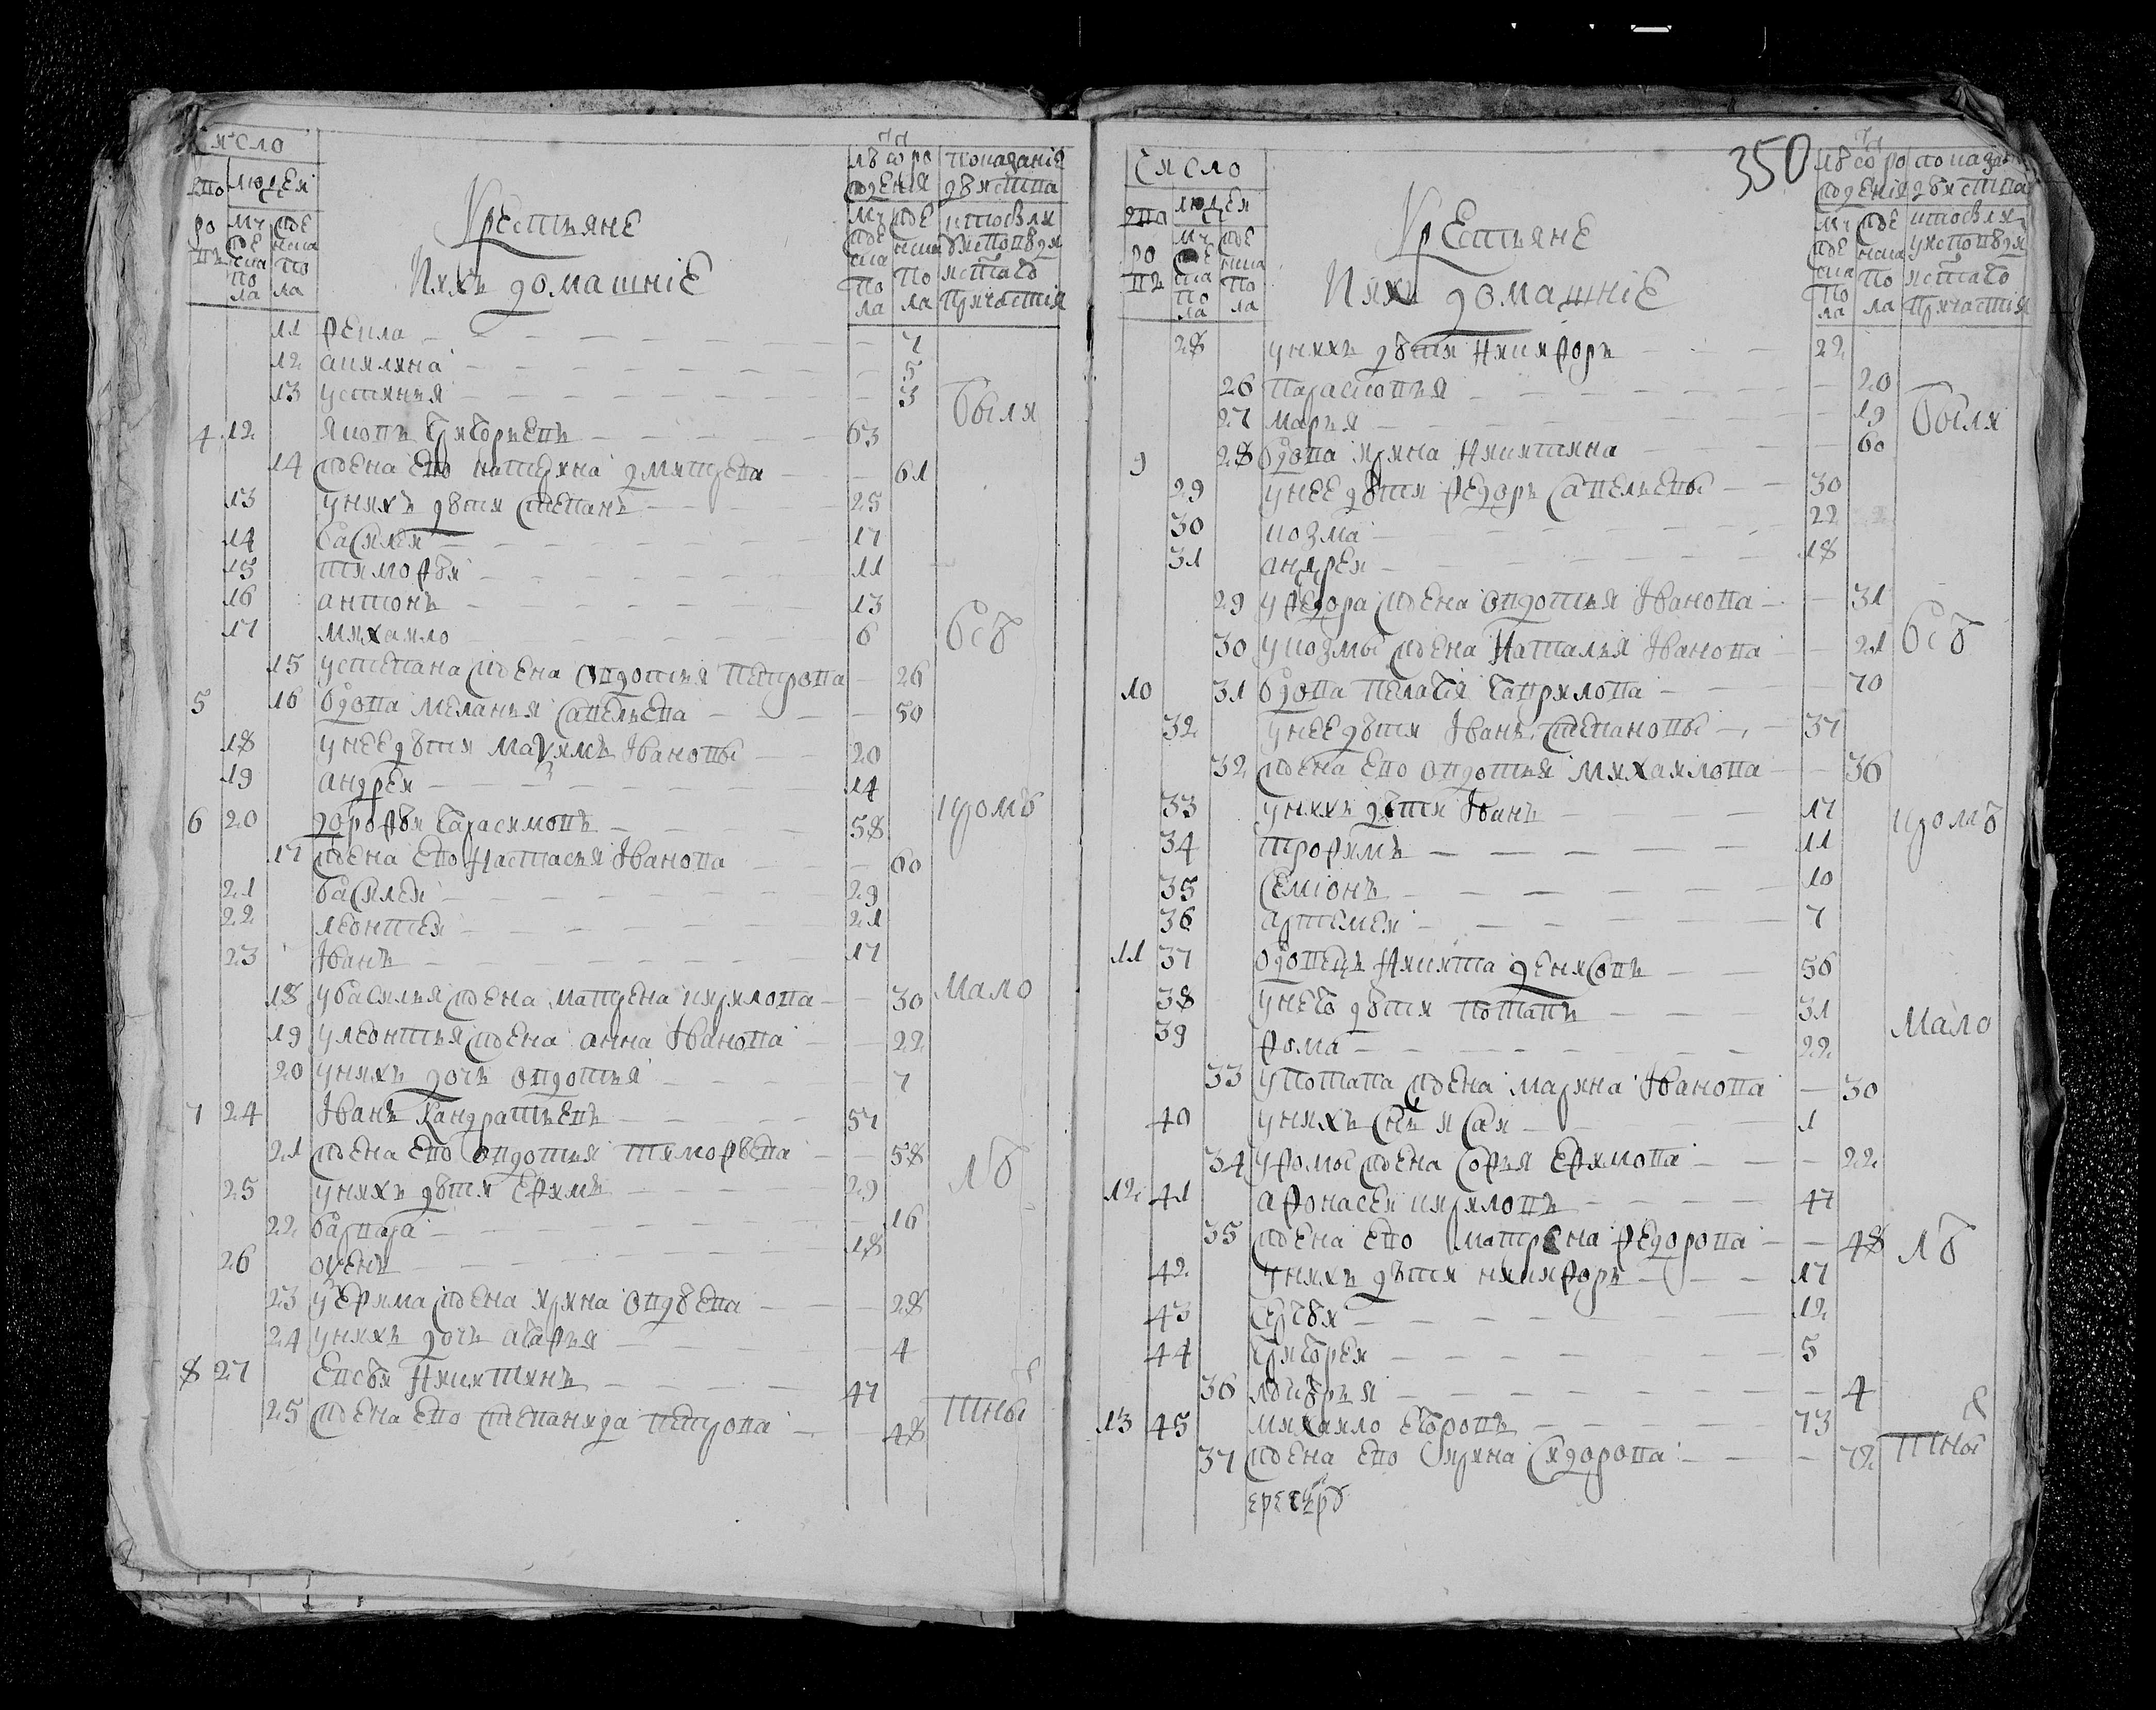 Число
дво ро въ
людей
мужеска пола
женска пола
Крестьяне
И ихъ домашние
лѣта от рождения
мужеска пола
женска пола
показание действа кто былъ у исповеди и святаго причастия
11 Фекла 7
12 Акилина 5
13 Устинья 3
4 12 Яковъ Григорьевъ 63
14 жена ево Катерина Дмитрева 61
13 у нихъ дѣти Степанъ 25
14 Василей 17
15 Тимофѣй 11
16 Антонъ 13
17 Михаило 6
15 у Степана жена Овдотья Петрова 26
5 16 вдова Меланья Савельева 50
18 у нее дѣти Маѯимъ Iвановы 20
19 Андрей 14
6 20 Дорофѣй Гарасимовъ 58
17 жена ево Настасья Iванова 60
21 Василей 29
22 Леонтей 21
23 Iванъ 17
18 у Василья жена Матрена Кирилова 30
19 у Леонтья жена Анна Iванова 22
20 у нихъ дочь Овдотья 7
7 24 Iванъ Кандратьевъ 57
21 жена ево Овдотья Тимофѣева 58
25 у нихъ дѣти Ефимъ 29
22 Варвара 16
26 18
23 у Ефима жена Ирина Овдѣева 28
24 у нихъ дочь Агафья 4
8 27 Евсѣй Никитинъ 47
25 жена ево Степанида Петрова 48
были
всѣ
кромѣ
мало
лѣ
тных
350
Число
дво ро въ
людей
мужеска пола
женска пола
Крестьяне
И ихъ домашние
28 у нихъ дѣти Никифоръ 22
26 Парасковья 20
27 Марья 19
9 28 вдова Ирина Никитина 60
29 у нее дѣти Федоръ Савельевы 30
30 Козма 22
31 Андрей 18
29 у Федора жена Овдотья Iванова 31
30 у Козмы жена Наталья Iванова 21
10 31 вдова Пелагiя Гаврилова 70
32 у нее дѣти Iванъ Степановы 37
32 жена ево Овдотья Михаилова 36
33 у нихъ дѣти Iванъ 17
34 Трофимъ 11
35 Семiонъ 10
36 Артемей 7
11 37 вдовецъ Никита Денисовъ 56
38 у него дѣти Потапъ 31
39 Фома 22
33 у Потапа жена Марина Iванова 30
40 у нихъ снъ Исай 1
34 у Фомы жена Софья Ефимова 22
12 41 Афонасей Кириловъ 47
35 жена ево Матрена Федорова 48
42 у нихъ дѣти Никифоръ 17
43 Сергѣй 12
44 Григорей 5
36 Лукерья 4
13 45 Михаило Егоровъ 73
37 жена ево Ирина Сидорова 72
были
всѣ
кромѣ
мало
лѣ
тных